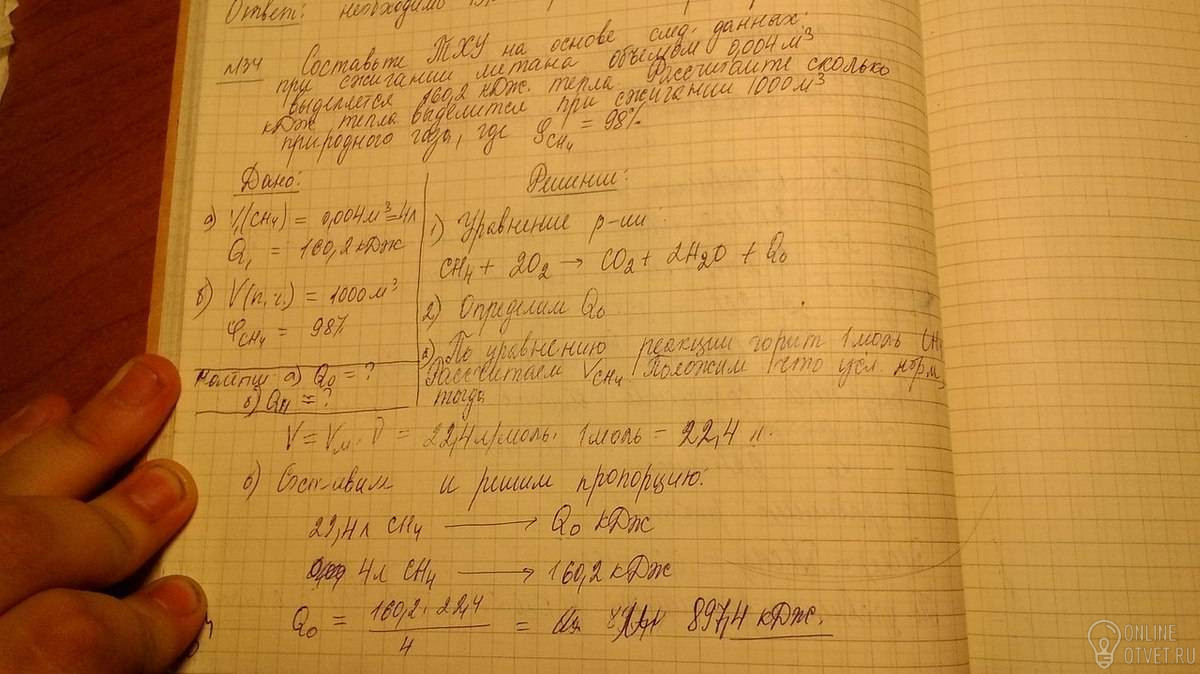 Ответ: необходимо
№34 Составьте ТХУ на основе след. данных:
при сжигании метана объёмом 0,004 м³
выделяется 160,2 кДж. тепла. Рассчитайте сколько
кДж тепла выделится при сжигании 1000 м³
природного газа, где φCH₄ = 98%
Дано:
а) V₁(CH₄) = 0,004 м³ = 4л
Q₁ = 160,2 кДж
б) V(п.г.) = 1000 м³
φCH₄ = 98%
Найти а) Q₀ = ?
б) = ?
Решение:
1) Уравнение р-ии:
CH₄ + 2O₂ → CO₂ + 2H₂O + Q₀
2) Определим Q₀
а) По уравнению реакции горит 1 моль CH₄
Рассчитаем VCH₄ Положим что усл. норм,
тогда
V = Vм · ν = 22,4 л/моль · 1 моль = 22,4 л.
б) и решим пропорцию:
22,4 л CH₄ → Q₀ кДж
4л CH₄ → 160,2 кДж
Q₀ = 160,2 · 22,4 / 4 = 897,4 кДж.
ONLINE
OTVET.RU